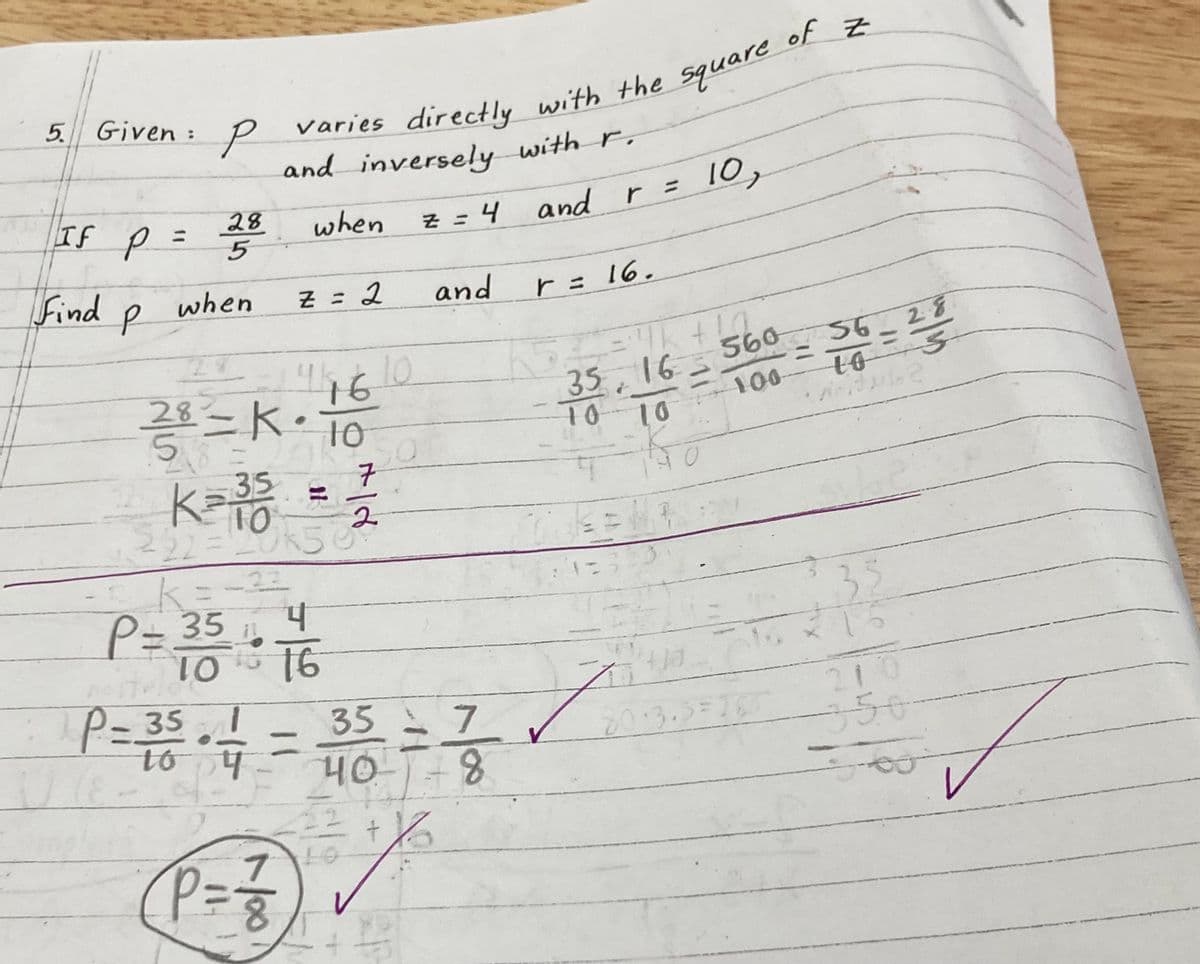 5. Given : p varies directly with the square of z
and inversely with r.
If p = 28/5 when z = 4 and r = 10,
find p when z = 2 and r = 16.
28/5 = K · 16/10
35/10 · 16/10 = 560/100 = 56/10 = 28/5
K = 35/10 = 7/2
P = 35/10 · 4/16
P = 35/10 · 1/4 = 35/40 = 7/8 ✓
P = 7/8 ✓
✓